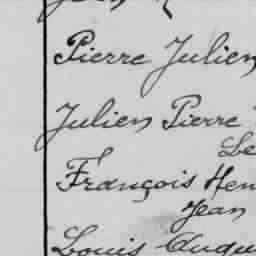 Pierre Julien
Julien Pierre
Le
François Hen
Jean
Louis Augu